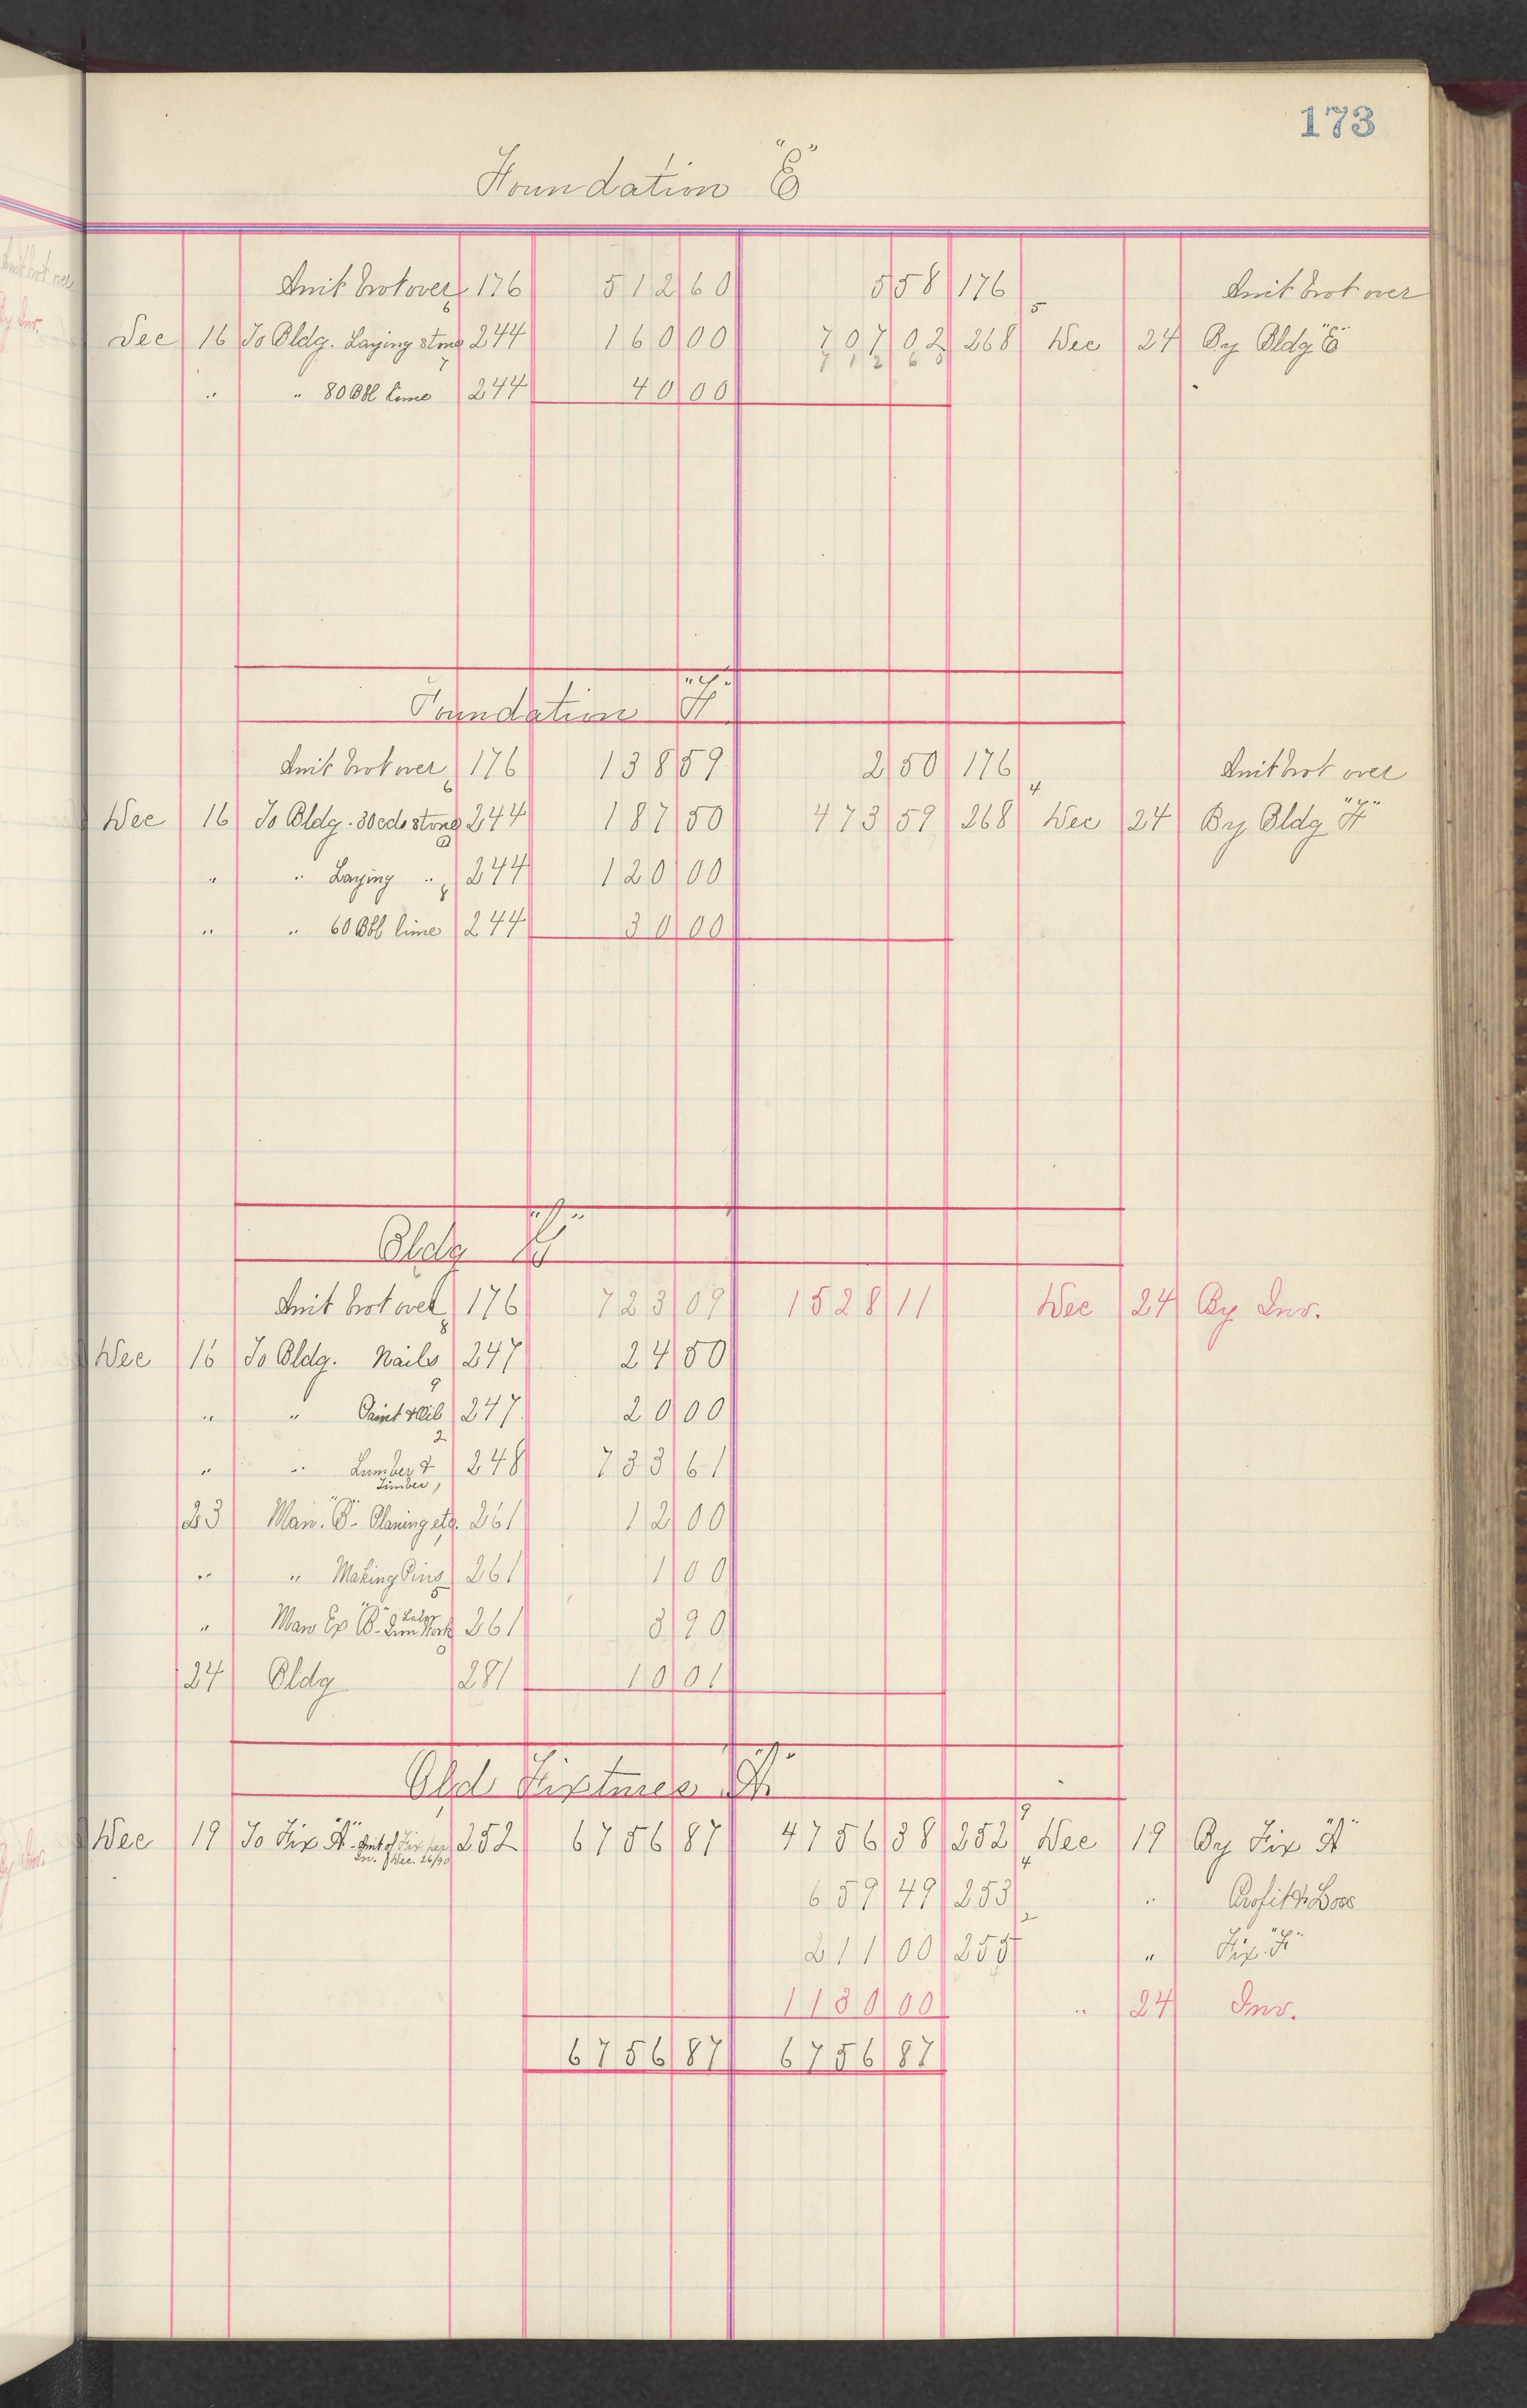 173
Foundation "E"
Amt brot over 176 512 60 5 58 176 Amt brot over
Dec 16 To Bldg. Laying stone 6 244 160 00 707 02 268 5 Dec 24 By Bldg "E"
" " 80 Bbl lime 7 244 40 00 712 60
Foundation "F"
Amt brot over 176 138 59 2 50 176 Amt brot over
Dec 16 To Bldg. 30 cds stone 6 244 187 50 473 59 268 4 Dec 24 By Bldg "F"
" " Laying " 244 120 00
" " 60 Bbl lime 8 244 30 00
Bldg "F"
Amt brot over 176 723 09 1528 11 Dec 24 By Inv.
Dec 16 To Bldg. Nails 8 247 24 50
" " Paint & Oil 9 247 20 00
" " Lumber & 2 248 733 61
Timber,
23 Man. "B" Planing etc. 261 12 00
" " Making Pins 261 1 00
" Man Ex "B" Labor 261 3 90
24 Bldg 281 10 01
Old Fixtures "A"
Dec 19 To Fix "A" Amt of Fix per 252 6756 87 4756 38 252 9 Dec 19 By Fix "A"
In. Dec. 26/90
659 49 253 4 " Profit & Loss
211 00 255 2 " Fix. "F"
1130 00 " 24 Inv.
6756 87 6756 87